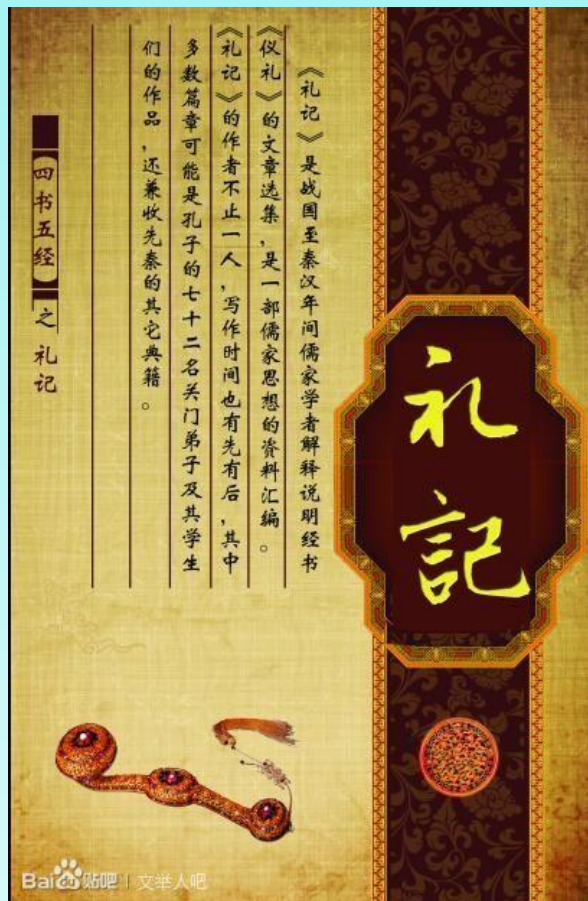 礼記
《礼记》是战国至秦汉年间儒家学者解释说明经书
《仪礼》的文章选集，是一部儒家思想的资料汇编。
《礼记》的作者不止一人，写作时间也有先有后，其中
多数篇章可能是孔子的七十二名关门弟子及其学生
们的作品，还兼收先秦的其它典籍。
【四书五经】之礼记
Bai du 贴吧 | 文举人吧